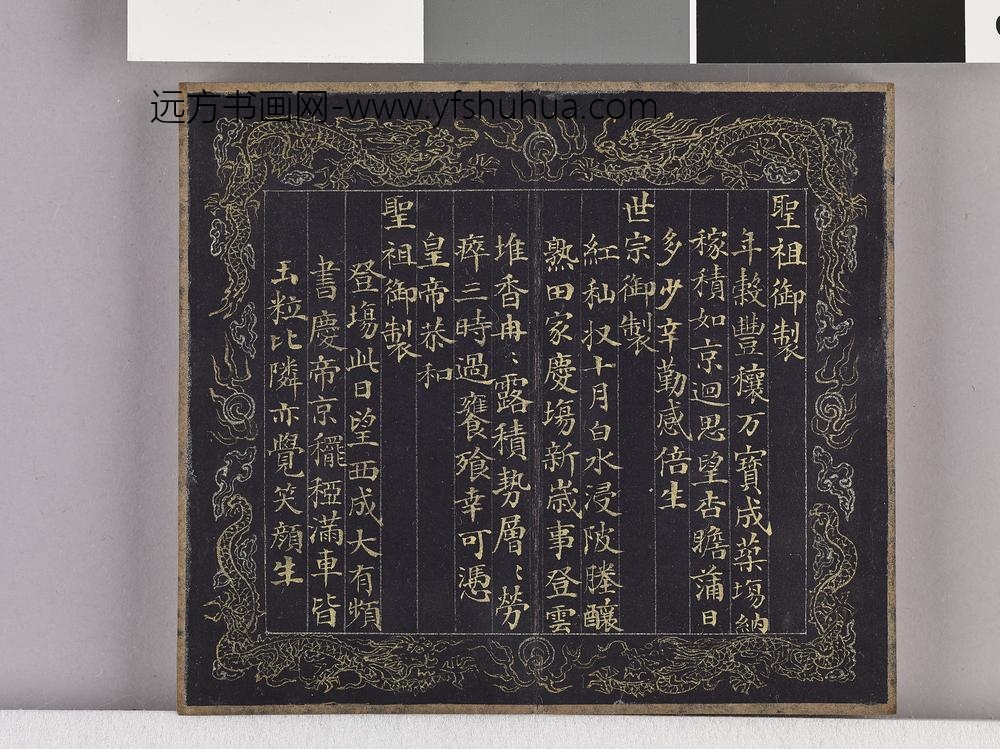 远方书画网-www.yfshuhua.com
聖祖御製
年穀豐穰万寳成築塲納
稼積如京迴思望杏瞻蒲日
多少辛勤感倍生
世宗御製
紅秈収十月白水浸陂塍釀
熟田家慶塲新嵗事登雲
堆香冉〻露積勢層〻勞
瘁三時過饔飱幸可慿
皇帝恭和
聖祖御製
登塲此日望西成大有頻
書慶帝京䆉稏滿車皆
玉粒比隣亦覺笑顔生